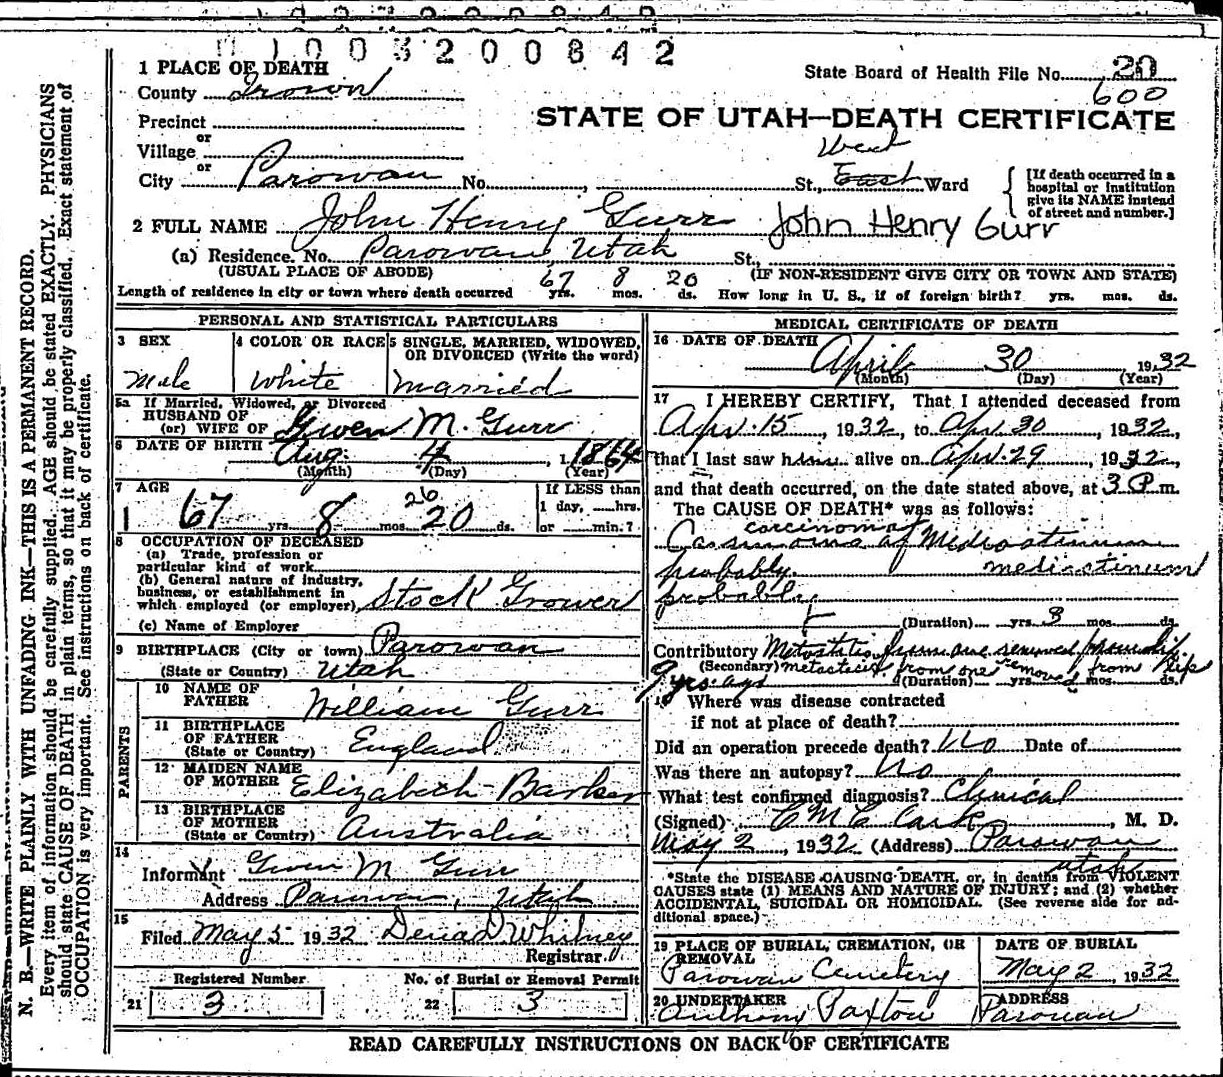 1003200842
1 PLACE OF DEATH
County Irown
State Board of Health File No. 20
600
Precinct
or
Village
or
City Parowan No. St., East Ward
West
STATE OF UTAH—DEATH CERTIFICATE
[If death occurred in a
hospital or institution
give its NAME instead
of street and number.]
2 FULL NAME John Henry Gurr John Henry Gurr
(a) Residence. No. Parowan, Utah St.,
(USUAL PLACE OF ABODE) (IF NON-RESIDENT GIVE CITY OR TOWN AND STATE)
Length of residence in city or town where death occurred 67 yrs. 8 mos. 20 ds. How long in U. S., if of foreign birth? yrs. mos. ds.
PERSONAL AND STATISTICAL PARTICULARS
3 SEX
Male
4 COLOR OR RACE
White
5 SINGLE, MARRIED, WIDOWED,
OR DIVORCED (Write the word)
Married
5a If Married, Widowed, or Divorced
HUSBAND OF
(or) WIFE OF Gwen M. Gurr
6 DATE OF BIRTH Aug. 4, 1864
(Month) (Day) (Year)
7 AGE
67 yrs. 8 mos. 20 ds.
26
If LESS than
1 day, hrs.
or min.?
8 OCCUPATION OF DECEASED
(a) Trade, profession or
particular kind of work
(b) General nature of industry,
business, or establishment in
which employed (or employer) Stock Grower
(c) Name of Employer
9 BIRTHPLACE (City or town) Parowan
(State or Country) Utah
PARENTS
10 NAME OF
FATHER William Gurr
11 BIRTHPLACE
OF FATHER
(State or Country) England
12 MAIDEN NAME
OF MOTHER Elizabeth Barker
13 BIRTHPLACE
OF MOTHER
(State or Country) Australia
14
Informant Gwen M Gurr
Address Parowan, Utah
15
Filed May 5 1932 Whitney
Registrar.
Registered Number
21 3
No. of Burial or Removal Permit
22 3
MEDICAL CERTIFICATE OF DEATH
16 DATE OF DEATH
April 30 1932
(Month) (Day) (Year)
17 I HEREBY CERTIFY, That I attended deceased from
Apr. 15, 1932, to Apr. 30, 1932,
that I last saw him alive on Apr. 29, 1932,
and that death occurred, on the date stated above, at 3 P m.
The CAUSE OF DEATH* was as follows:
carcinoma of
Carsinoma of Mediastinum
probably mediastinum
probably
(Duration) yrs. 3 mos. ds.
Contributory Metostitis from one removed from lip
(Secondary) metactices from one removed from lip
9 yrs. ago (Duration) yrs. mos. ds.
18 Where was disease contracted
if not at place of death?
Did an operation precede death? No Date of
Was there an autopsy? No
What test confirmed diagnosis? Clinical
(Signed) , M. D.
May 2, 1932 (Address) Parowan
Utah
*State the DISEASE CAUSING DEATH, or, in deaths from VIOLENT
CAUSES state (1) MEANS AND NATURE OF INJURY; and (2) whether
ACCIDENTAL, SUICIDAL OR HOMICIDAL. (See reverse side for ad-
ditional space.)
19 PLACE OF BURIAL, CREMATION, OR
REMOVAL
Parowan Cemetery
DATE OF BURIAL
May 2, 1932
20 UNDERTAKER
Anthony Paxton
ADDRESS
Parowan
READ CAREFULLY INSTRUCTIONS ON BACK OF CERTIFICATE
N. B.—WRITE PLAINLY WITH UNFADING INK—THIS IS A PERMANENT RECORD.
Every item of information should be carefully supplied. AGE should be stated EXACTLY. PHYSICIANS
should state CAUSE OF DEATH in plain terms, so that it may be properly classified. Exact statement of
OCCUPATION is very important. See instructions on back of certificate.